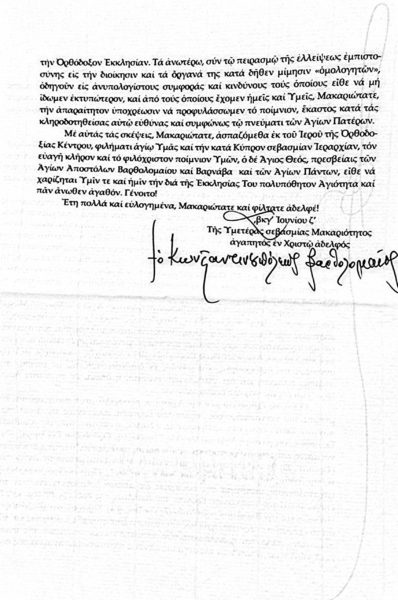 τήν Ὀρθόδοξον Ἐκκλησίαν. Τά ἀνωτέρω, σύν τῷ πειρασμῷ τῆς ἐλλείψεως ἐμπιστο-
σύνης εἰς τήν διοίκησιν καί τά ὄργανά της κατά δῆθεν μίμησιν «ὁμολογητῶν»,
ὁδηγοῦν εἰς ἀνυπολογίστους συμφοράς καί κινδύνους τούς ὁποίους εἴθε νά μή
ἴδωμεν ἐκτυπώτερον, καί ἀπό τούς ὁποίους ἔχομεν ἡμεῖς καί Ὑμεῖς, Μακαριώτατε,
τήν ἀπαραίτητον ὑποχρέωσιν νά προφυλάσσωμεν τό ποίμνιον, ἕκαστος κατά τάς
κληροδοτηθείσας αὐτῷ εὐθύνας καί συμφώνως τῷ πνεύματι τῶν Ἁγίων Πατέρων.
Μέ αὐτάς τάς σκέψεις, Μακαριώτατε, ἀσπαζόμεθα ἐκ τοῦ Ἱεροῦ τῆς Ὀρθο-
δοξίας Κέντρου, φιλήματι ἁγίῳ Ὑμᾶς καί τήν κατά Κύπρον σεβασμίαν Ἱεραρχίαν, τόν
εὐαγῆ κλῆρον καί τό φιλόχριστον ποίμνιον Ὑμῶν, ὁ δέ Ἅγιος Θεός, πρεσβείαις τῶν
Ἁγίων Ἀποστόλων Βαρθολομαίου καί Βαρνάβα καί τῶν Ἁγίων Πάντων, εἴθε νά
χαρίζηται Ὑμῖν τε καί ἡμῖν τήν διά τῆς Ἐκκλησίας Του πολυπόθητον Ἁγιότητα καί
πᾶν ἄνωθεν ἀγαθόν. Γένοιτο!
Ἔτη πολλά καί εὐλογημένα, Μακαριώτατε καί φίλτατε ἀδελφέ!
͵βκγ´ Ἰουνίου ζ´
Τῆς Ὑμετέρας σεβασμίας Μακαριότητος
ἀγαπητός ἐν Χριστῷ ἀδελφός
† ὁ Κωνσταντινουπόλεως Βαρθολομαῖος